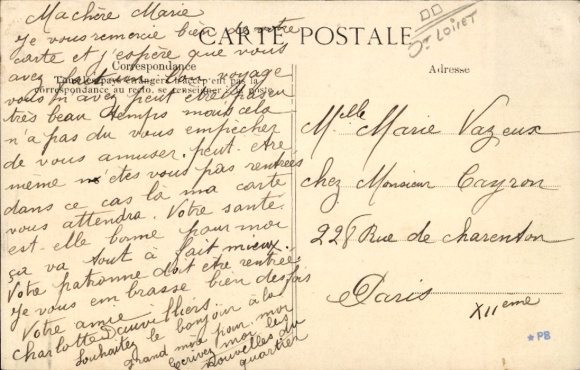 Ma chère Marie
Je vous remercie bien de votre
carte et j'espère que vous
avez fait un bon voyage
vous n'avez peut être pas eu
très beau temps mais cela
n'a pas du vous empecher
de vous amuser. peut-etre
même n'êtes vous pas rentrées
dans ce cas là ma carte
vous attendra. Votre santé
est-elle bonne pour moi
ça va tout à fait mieux.
Votre patronne doit etre rentrée
Je vous embrasse bien des fois
Votre amie
Charlotte Dauvilliers.
Souhaitez le bonjour à la
grand mère pour moi
Ecrivez moi les
nouvelles du
quartier
CARTE POSTALE
Correspondance
Tous les pays étrangers n'acceptent pas la
correspondance au recto, se renseigner à la poste
Dt Loiret
Adresse
Melle Marie Vazeux
chez Monsieur Cayron
228 Rue de Charenton
Paris
XIIème
*PB